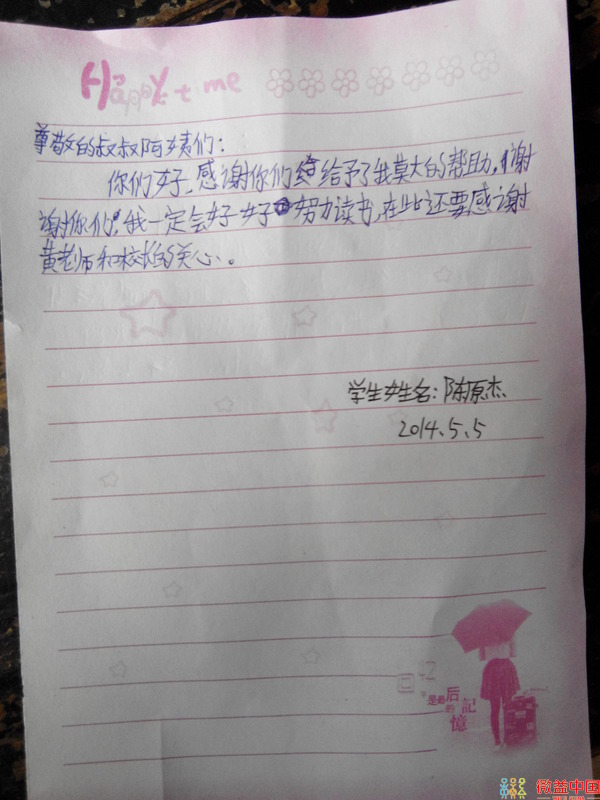 Happy time
尊敬的叔叔阿姨们:
你们好,感谢你们给给予了我莫大的帮助,谢
谢你们,我一定会好好努力读书,在此还要感谢
黄老师和校长的关心。
学生姓名:陈原杰
2014.5.5
回忆
是最后
的記
憶
微益中国